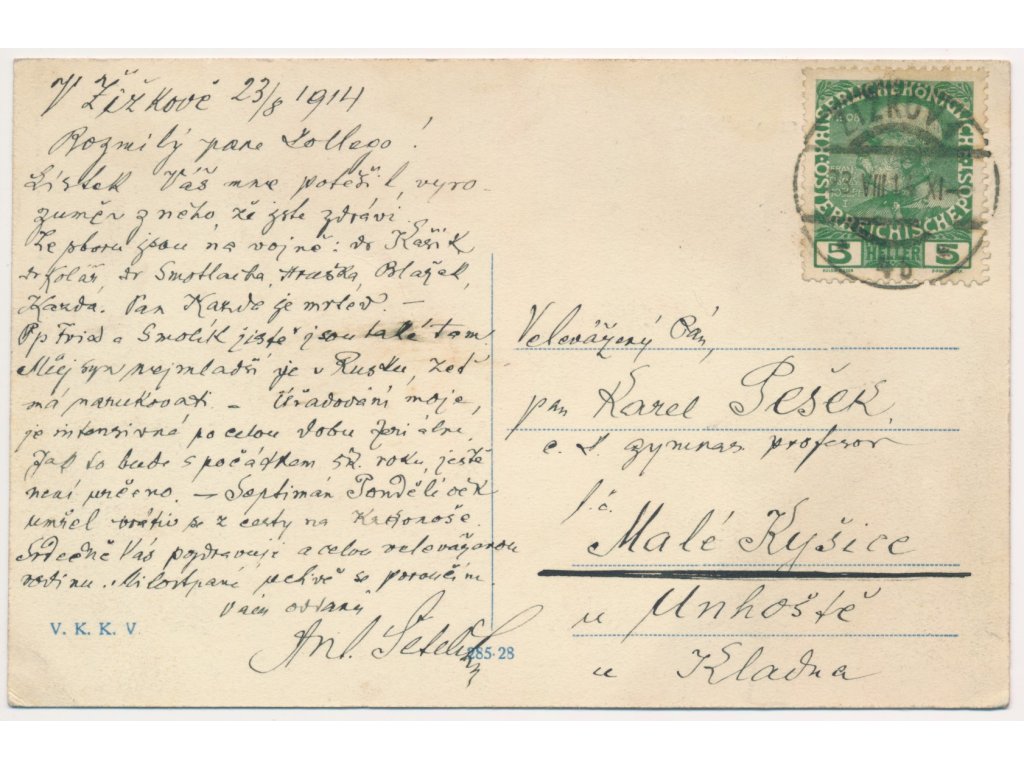 V Žižkově 23/8 1914
Rozmilý pane kollego!
Lístek Váš mne potěšil, vyro-
zuměv z něho, že jste zdrávi.
Ze sboru jsou na vojně: dr Kašík
dr Kolář, dr Smotlacha, Hruška, Blažek,
Kazda. Pan Kazda je mrtev. —
Pp Fried a Smolík jistě jsou také tam.
Můj syn nejmladší je v Rusku, zeť
má narukovati. — Úřadování moje,
je intensivné po celou dobu
Jak to bude s počátkem šk. roku, ještě
není určeno. — Septimán Pondělíček
umřel vrátiv se z cesty na Krkonoše.
Srdečně Vás pozdravuji a celou velevázenou
rodinu. Milostpaní uctivě se poroučím.
Vám oddaný
Ant.
V. K. K. V.
285-28
Velevážený Pán,
pan Karel Pešek
c. k. gymnas. profesor
t. č.
Malé Kyšice
u Unhoště
u Kladna
ŽIŽKOV 1
23 VIII 14 XI
4b
KAISERLICHE KÖNIGLICHE
ÖSTERREICHISCHE POST
5 HELLER 5